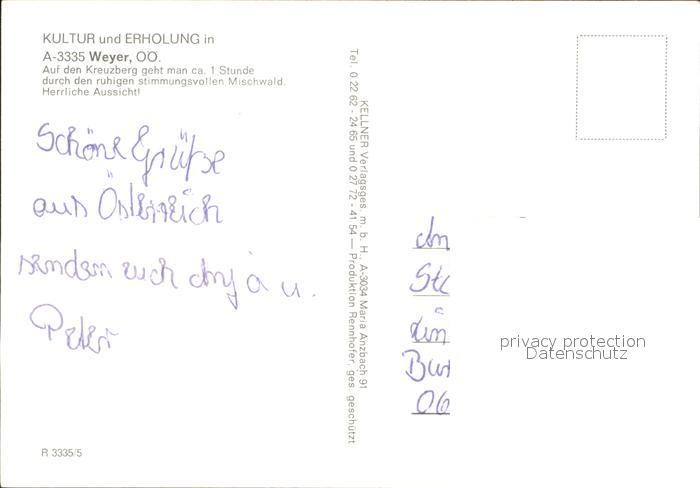 KULTUR und ERHOLUNG in
A-3335 Weyer, OÖ.
Auf den Kreuzberg geht man ca. 1 Stunde
durch den ruhigen stimmungsvollen Mischwald.
Herrliche Aussicht!
Schöne Grüße
aus Österreich
senden euch Anja u.
Peter
R 3335/5
Tel. 0 22 62 - 24 65 und 0 27 72 - 41 54 — Produktion Rennhofer, ges. geschützt
KELLNER Verlagsges. m. b. H., A-3034 Maria Anzbach 91
An
06
privacy protection
Datenschutz